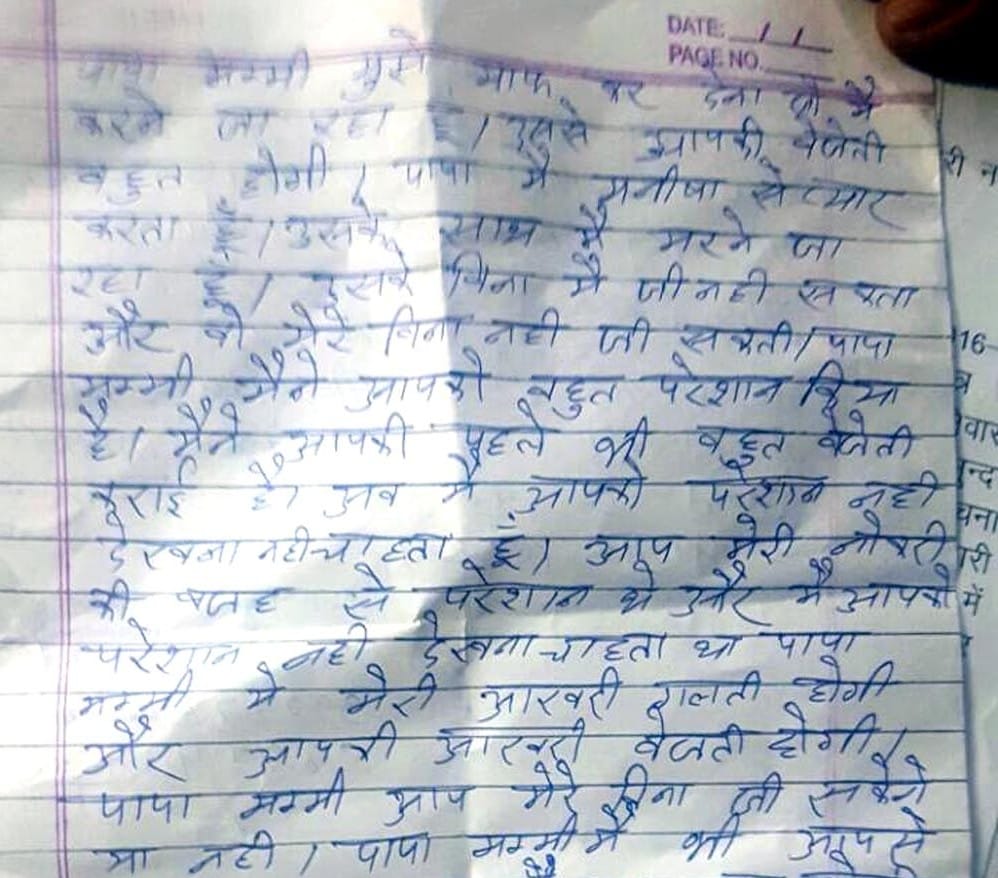 DATE: / /
PAGE NO.
पापा मम्मी मुझे माफ कर देना जो मै
करने जा रहा हूँ। इससे आपकी बेजेती
बहुत होगी। पापा मै मनीषा से प्यार
करता हूँ। उसके साथ मै मरने जा
रहा हूँ। उसके बिना मै जी नही सकता
और वो मेरे बिना नही जी सकती। पापा
मम्मी मैने आपको बहुत परेशान किया
है। मैने आपकी पहले भी बहुत बेजेती
कराई है। अब मै आपको परेशान नही
देखना नही चाहता हूं। आप मेरी नोकरी
की वजह से परेशान थे और मै आपको
परेशान नही देखना चाहता था पापा
मम्मी ये मेरी आखरी गलती होगी
और आपकी आखरी बेजती होगी।
पापा मम्मी आप मेरे बिना जी सकेगे
या नही। पापा मम्मी मै भी आप से
री न
16
वार
न्द
चना
री
में